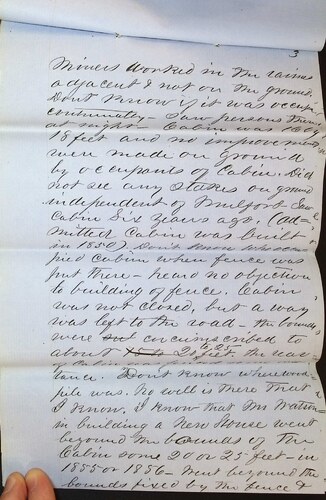 3
Miners worked in the ravines
adjacent & not on the ground.
Dont know if it was occupied
continually - Saw persons there
at night - Cabin was 16 by
18 feet and no improvements
were made on ground
by occupants of Cabin. Did
not see any stakes on ground
independent of
Cabin Six Years ago. (ad=
mitted Cabin was built
in 1850) Dont know who occu
pied Cabin when fence was
put there - heard no objection
to building of fence. Cabin
was not closed, but a way
was left to the road - the bounds
were circumscribed to
about 25 feet
tance. Dont know where wood
pile was. No well is there that
I know. I know that Mr Watson
in building a New House went
beyond the bounds of the
Cabin some 20 or 25 feet - in
1855 or 1856 - Went beyond the
bounds fixed by the fence &